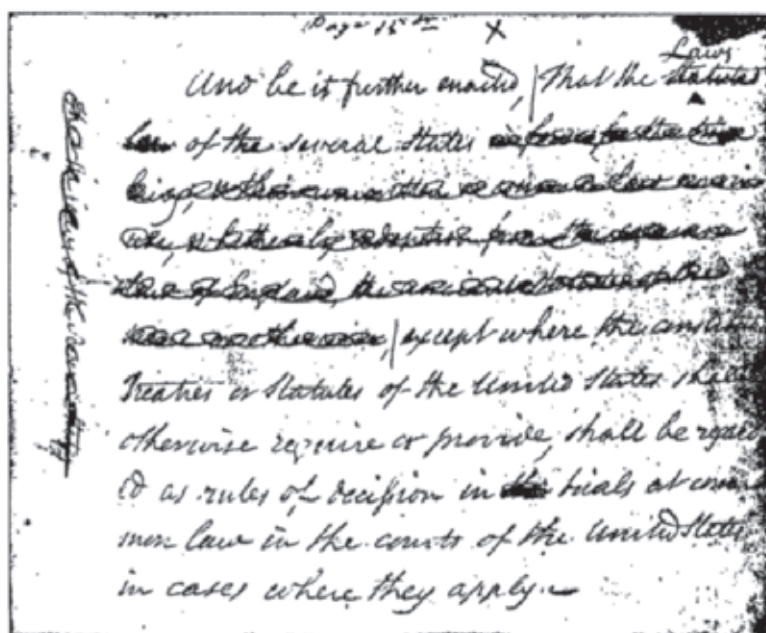 Page 15 X
Laws
And be it further enacted, That the Statute
law of the several States in force for the time
being, & their unwritten or common law now in
use, whether by adoption from the common
law of England, the ancient statutes of the
same or otherwise, except where the constitu
Treaties or Statutes of the United States shall
otherwise require or provide, shall be regard
ed as rules of decision in the trials at com
mon law in the courts of the United States
in cases where they apply.